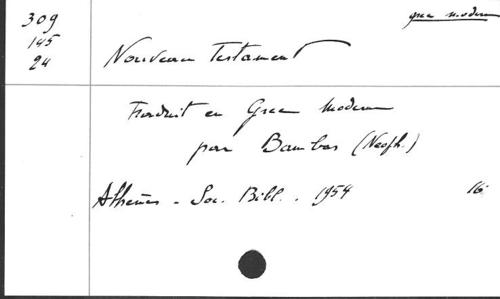 309
145
24
grec moderne
Nouveau Testament
Traduit en Grec Moderne
par Bambas (Neoph.)
Athènes - Soc. Bibl. . 1954 16°